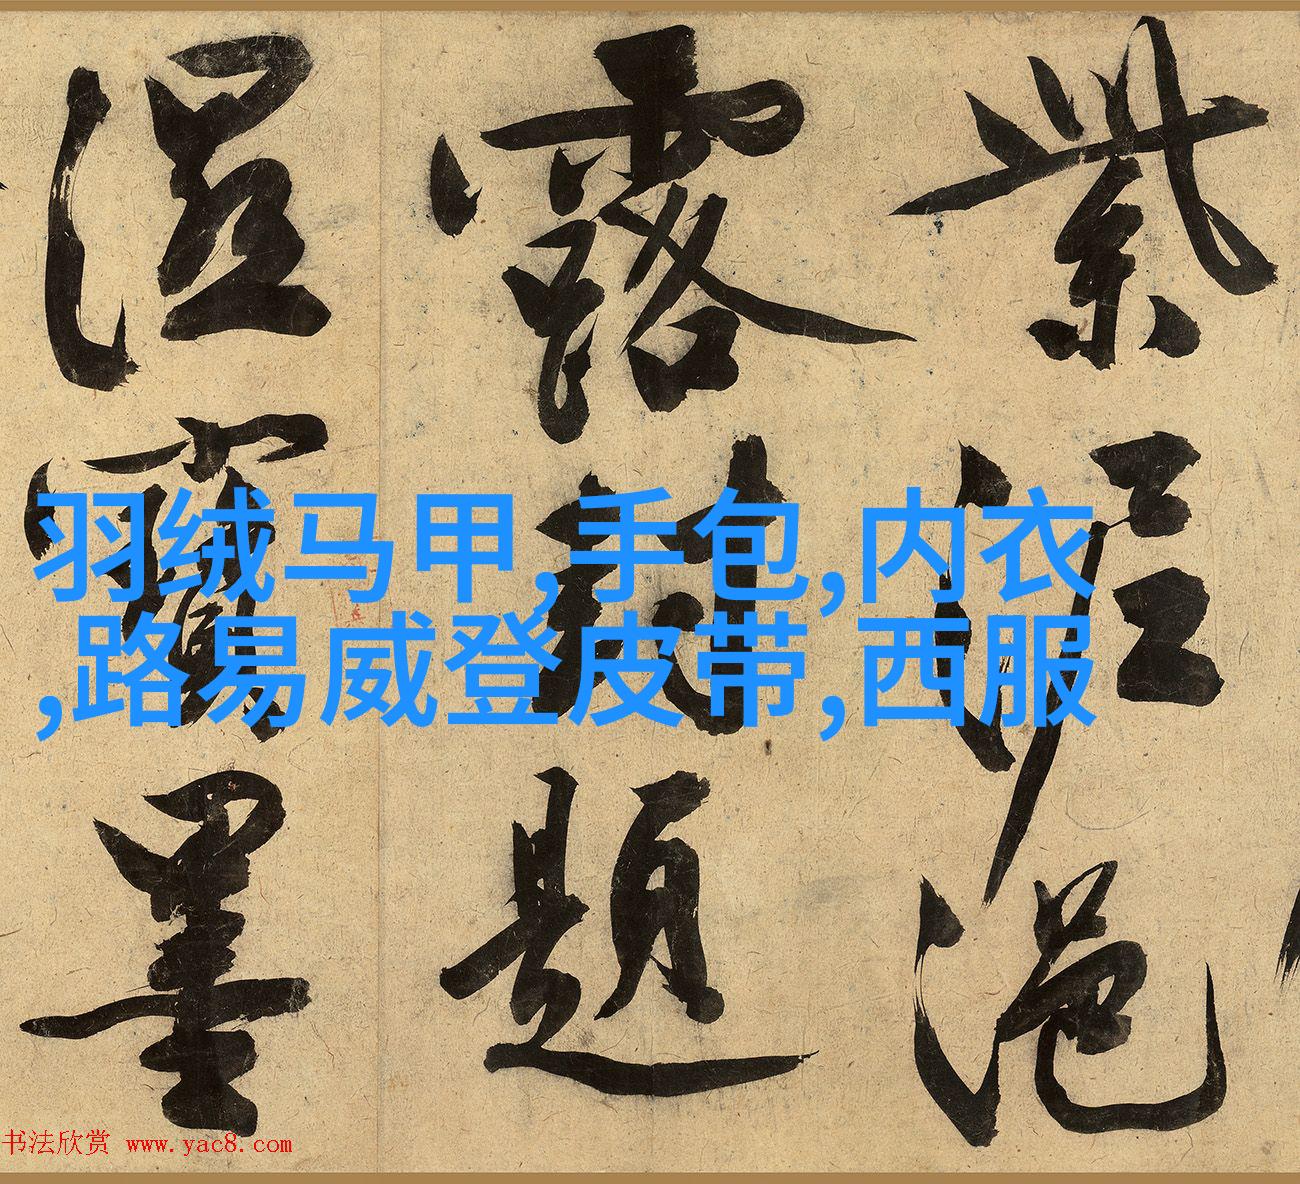 紫泥浥
露封題
濕寶墨
羽绒马甲,手包,内衣
,路易威登皮带,西服
书法欣赏 www.yac8.com